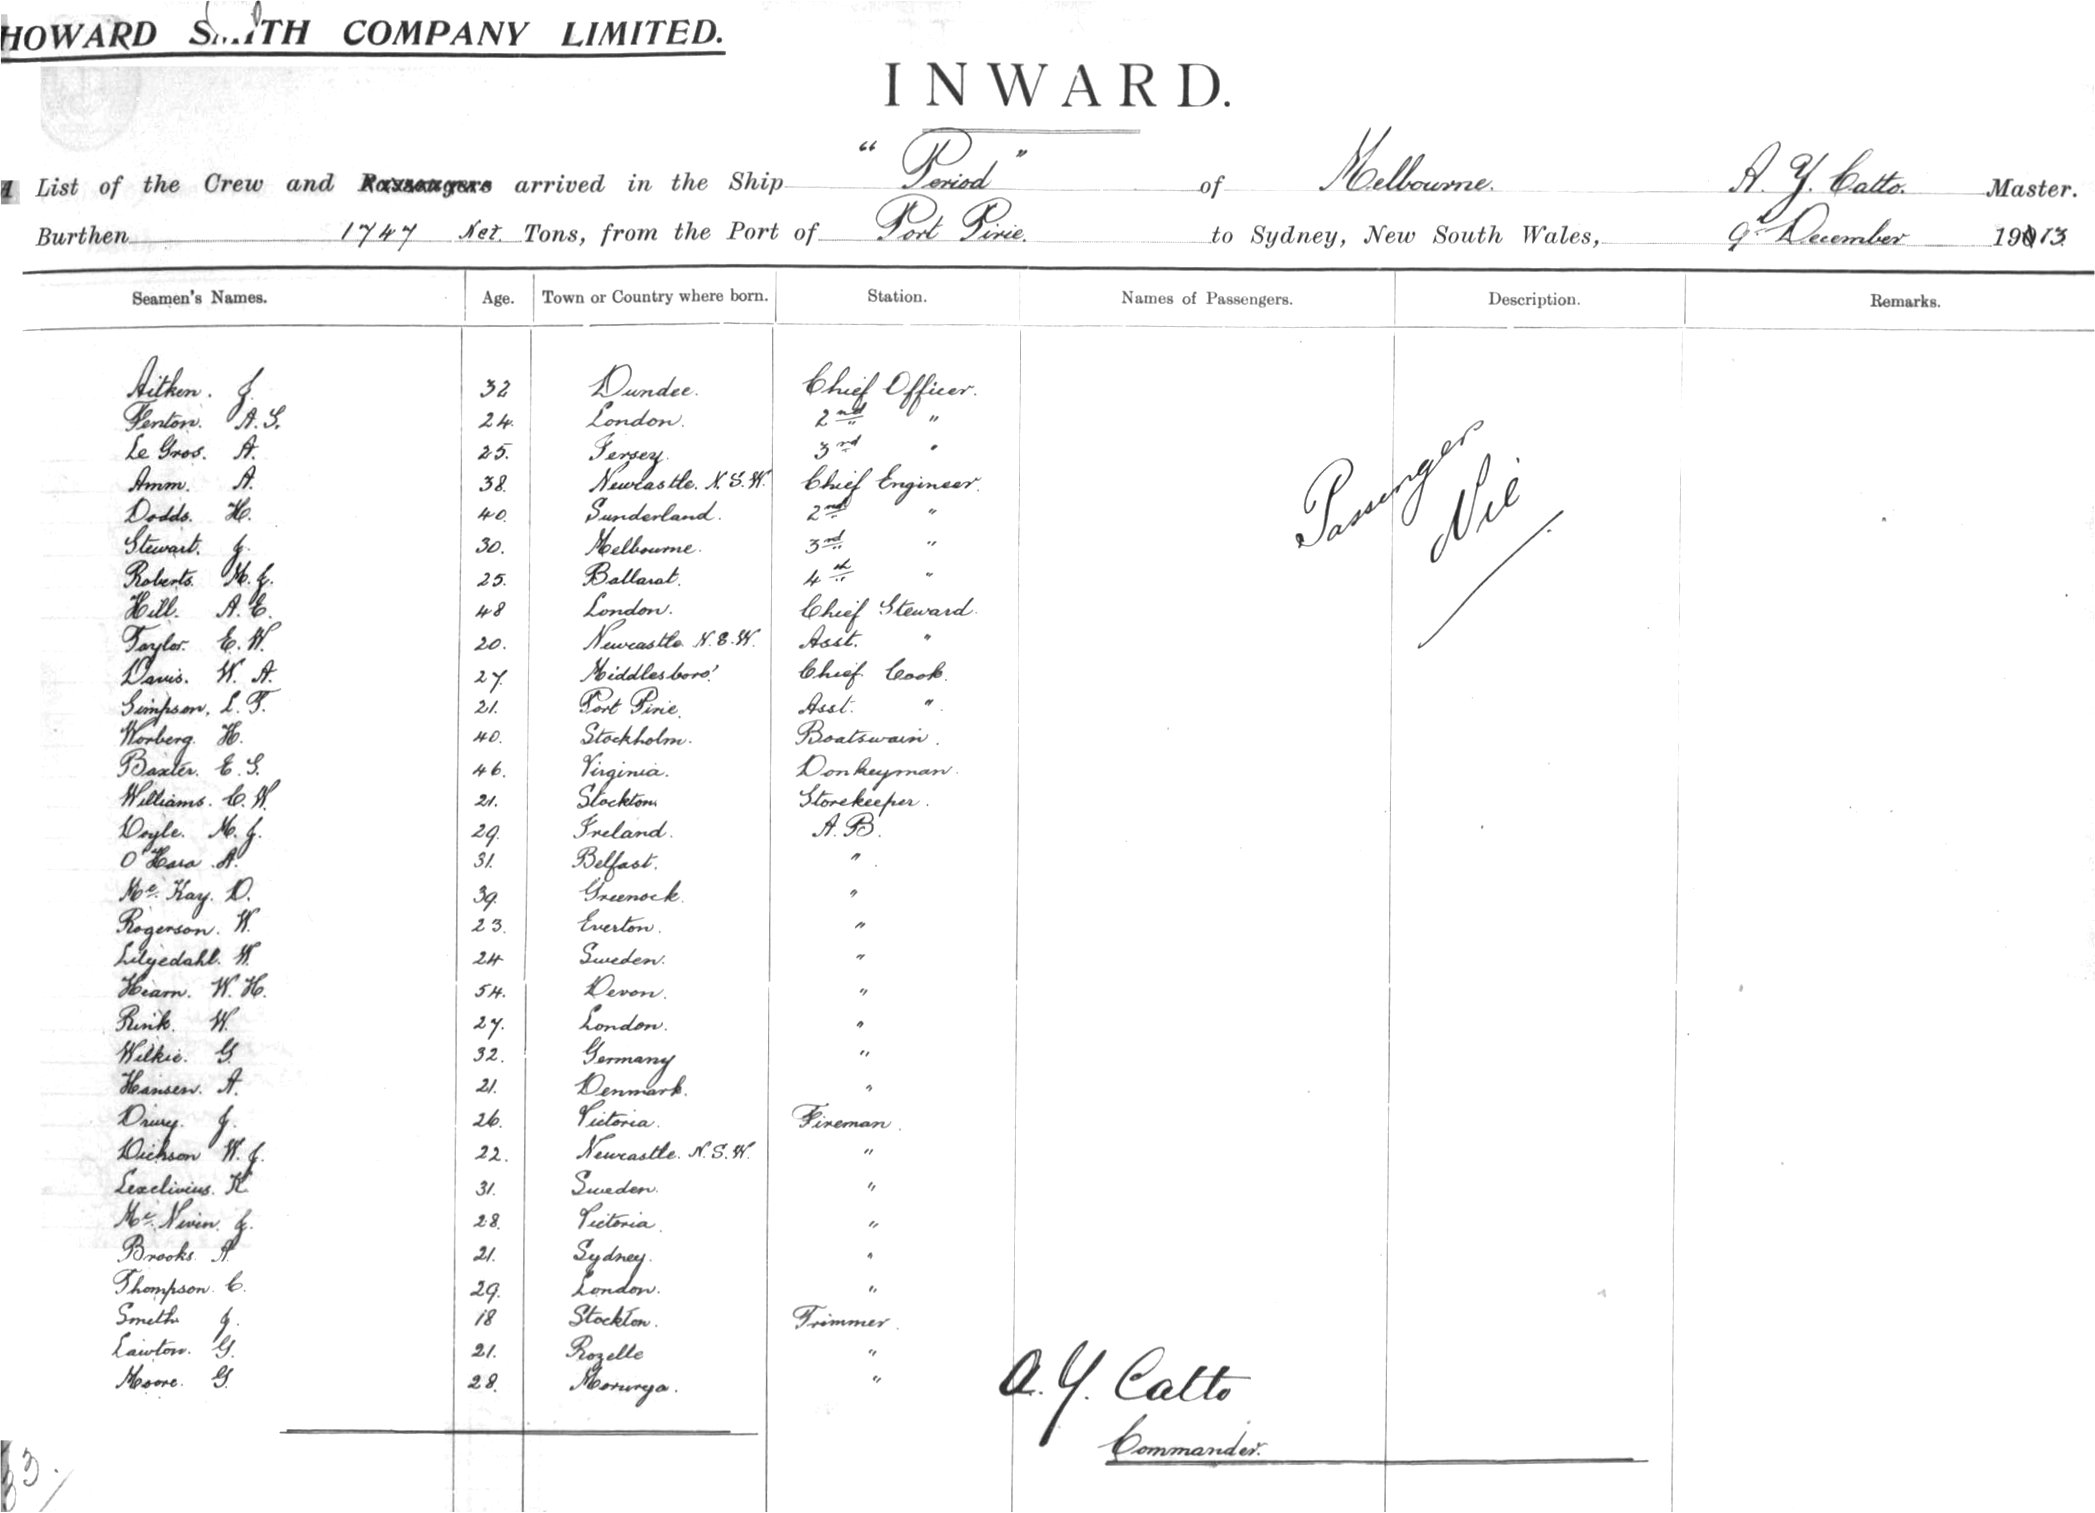 HOWARD SMITH COMPANY LIMITED.
INWARD.
List of the Crew and Passengers arrived in the Ship "Period" of Melbourne. A. Y. Catto. Master.
Burthen 1747 Net. Tons, from the Port of Port Pirie. to Sydney, New South Wales, 9th December 1913
Seamen's Names. Age. Town or Country where born. Station. Names of Passengers. Description. Remarks.
Aitken. J. 32 Dundee. Chief Officer.
Fenton. A. S. 24. London. 2nd "
Le Gros. A. 25. Jersey. 3rd "
Amm. A. 38. Newcastle. N. S. W. Chief Engineer.
Dodds. H. 40. Sunderland. 2nd "
Stewart. J. 30. Melbourne. 3rd "
Roberts. M. J. 25. Ballarat. 4th "
Hill. A. E. 48 London. Chief Steward.
Taylor. E. W. 20. Newcastle N. S. W. Asst. "
Davis. W. A. 27. Middlesboro'. Chief Cook.
Simpson. L. F. 21. Port Pirie. Asst. "
Worberg. H. 40. Stockholm. Boatswain.
Baxter. E. S. 46. Virginia. Donkeyman.
Williams. C. W. 21. Stockton. Storekeeper.
Doyle. M. J. 29. Ireland. A. B.
O'Hara. A. 31. Belfast. "
Mc. Kay. D. 39. Greenock. "
Rogerson. W. 23. Everton. "
Liljedahl. W. 24 Sweden. "
Hearn. W. H. 54. Devon. "
Rink. W. 27. London. "
Wilkie. G. 32. Germany "
Hansen. A. 21. Denmark. "
Drury. J. 26. Victoria. Fireman.
Dickson W. J. 22. Newcastle. N. S. W. "
K. 31. Sweden. "
Mc. Nivin. J. 28. Victoria. "
Brooks. A 21. Sydney. "
Thompson. C. 29. London. "
Smith J. 18 Stockton. Trimmer.
Lawton. G. 21. Rozelle "
Moore. G. 28. Moruya. "
Passengers
Nil
A. Y. Catto
Commander.